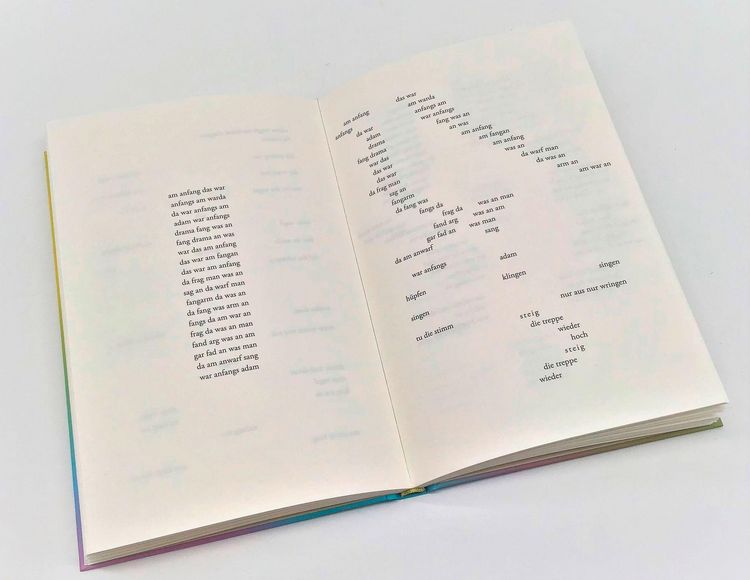 am anfang das war
anfangs am warda
da war anfangs am
adam war anfangs
drama fang was an
fang drama an was
war das am anfang
das war am fangan
das war am anfang
da frag man was an
sag an da warf man
fangarm da was an
da fang was arm an
fangs da am war an
frag da was an man
fand arg was an am
gar fad an was man
da am anwarf sang
war anfangs adam
am anfang das war
anfangs am warda
da war anfangs am
adam war anfangs
drama fang was an
fang drama an was
war das am anfang
das war am fangan
das war am anfang
da frag man was an
sag an da warf man
fangarm da was an
da fang was arm an
fangs da am war an
frag da was an man
fand arg was an am
gar fad an was man
da am anwarf sang
war anfangs adam
hüpfen klingen singen
singen nur aus nur wringen
tu die stimm steig
die treppe
wieder
hoch
steig
die treppe
wieder